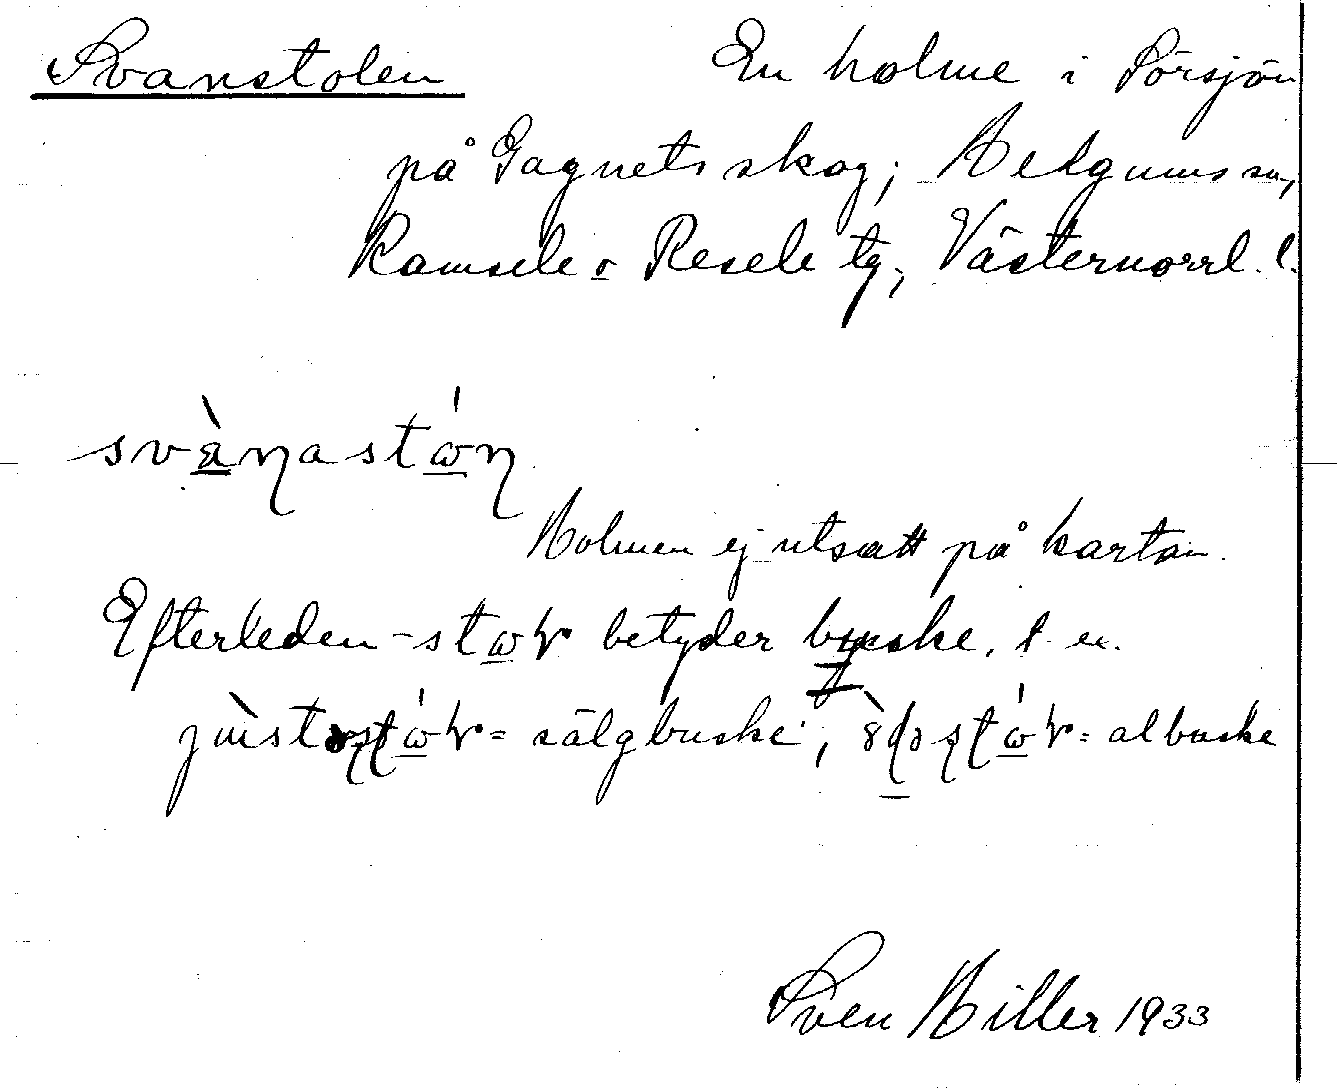 Svanstolen
En holme i Sörsjön
på Gagnets skog; Helgums sn,
Ramsele o Resele tg, Västernorrl. l.
Holmen ej utsatt på kartan.
Efterleden betyder buske, t. ex.
= sälgbuske; = albuske
Sven Hiller 1933